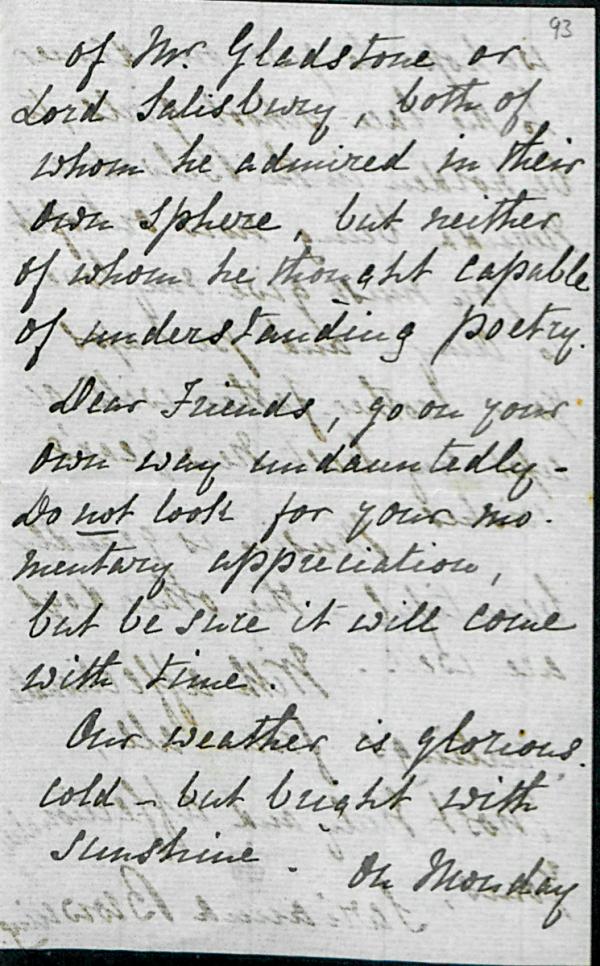 93
of Mr. Gladstone or
Lord Salisbury, both of
whom he admired in their
own sphere, but neither
of whom he thought capable
of understanding poetry.
Dear Friends, go on your
own way undauntedly -
Do not look for your mo-
mentary appreciation,
but be sure it will come
with time.
Our weather is glorious.
cold - but bright with
sunshine.
On Monday